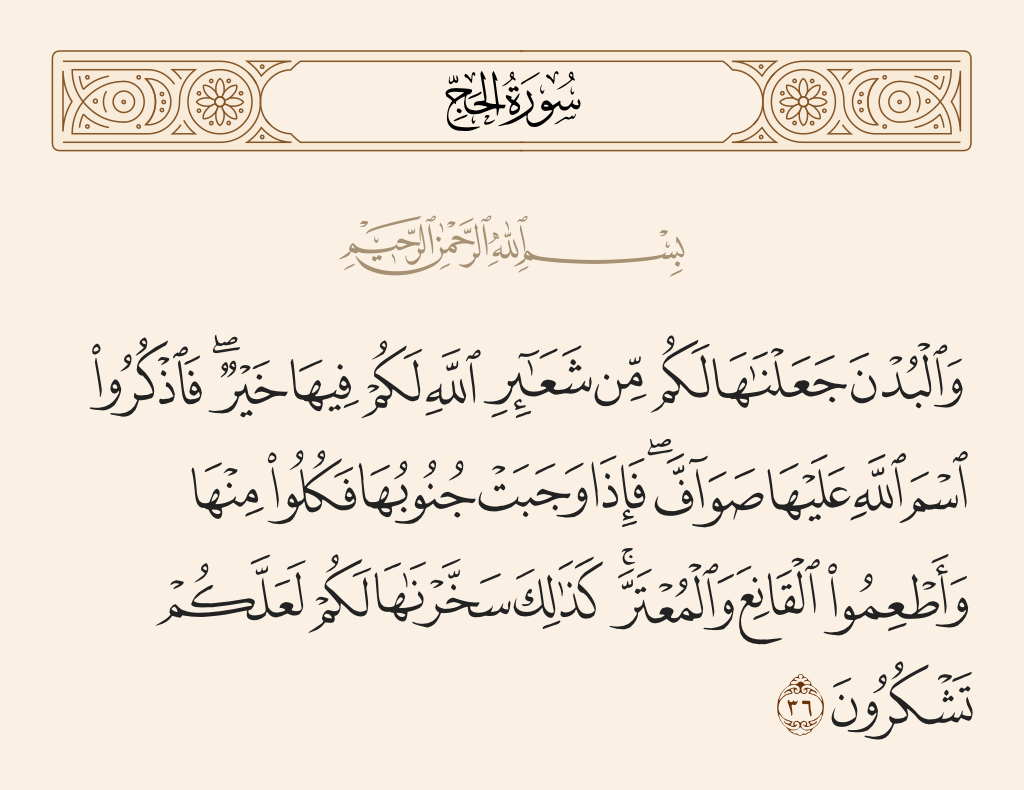 سُورَةُ الحَجِّ
بِسْمِ ٱللَّهِ ٱلرَّحْمَٰنِ ٱلرَّحِيمِ
وَٱلْبُدْنَ جَعَلْنَٰهَا لَكُم مِّن شَعَٰٓئِرِ ٱللَّهِ لَكُمْ فِيهَا خَيْرٌ ۖ فَٱذْكُرُوا۟
ٱسْمَ ٱللَّهِ عَلَيْهَا صَوَآفَّ ۖ فَإِذَا وَجَبَتْ جُنُوبُهَا فَكُلُوا۟ مِنْهَا
وَأَطْعِمُوا۟ ٱلْقَانِعَ وَٱلْمُعْتَرَّ ۚ كَذَٰلِكَ سَخَّرْنَٰهَا لَكُمْ لَعَلَّكُمْ
تَشْكُرُونَ ٣٦